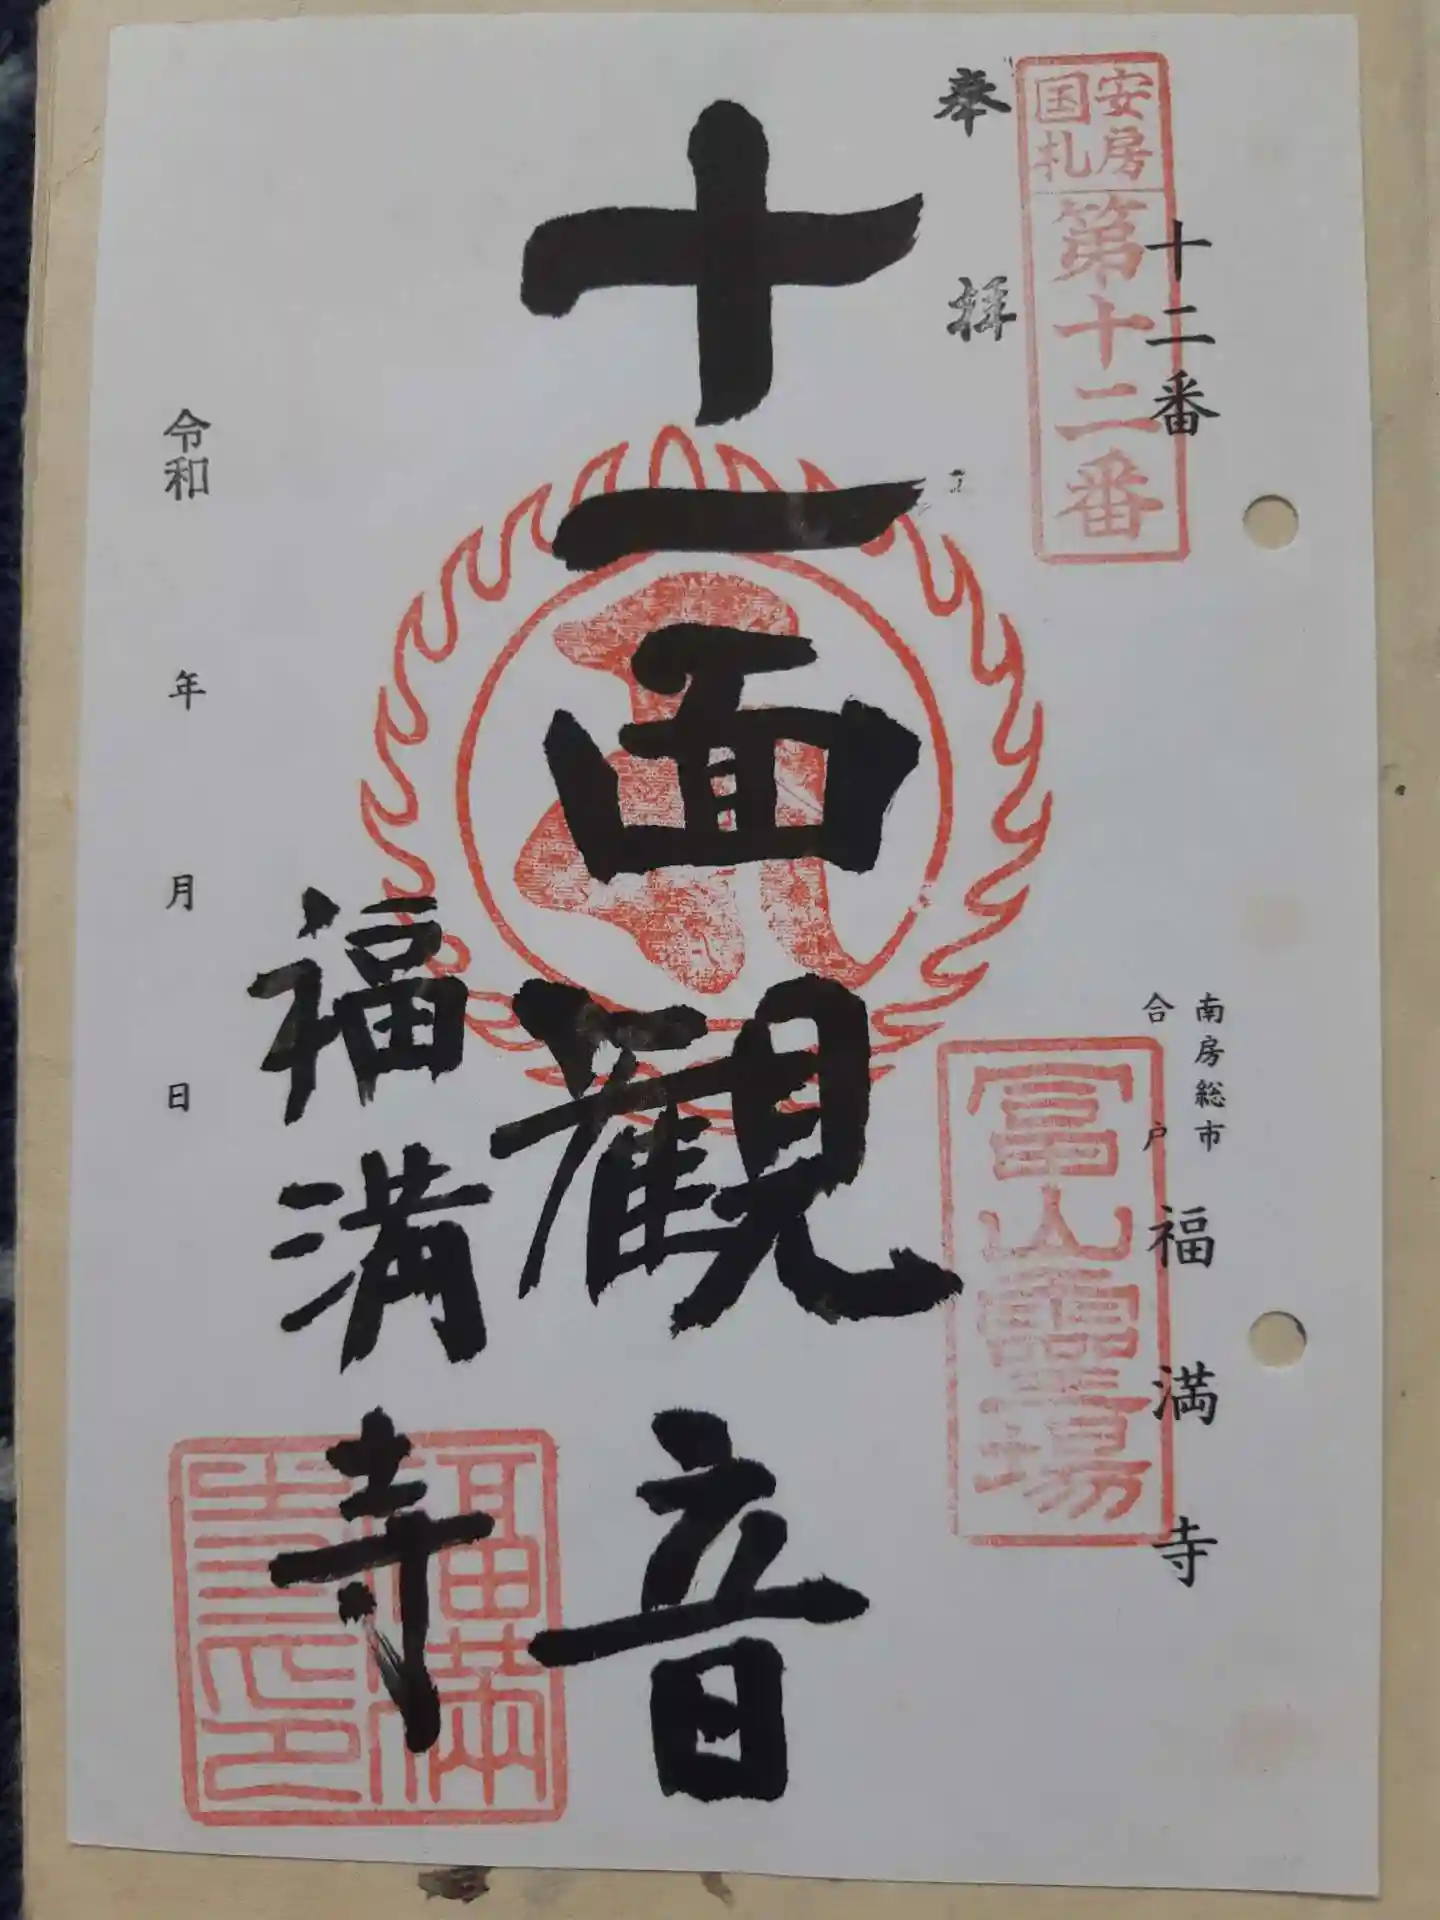 十二番
南房総市
合戸
福満寺
安房
国札
第十二番
冨山霊場
奉拝
十一面観音
福満寺
福満
寺之印
令和　年　月　日